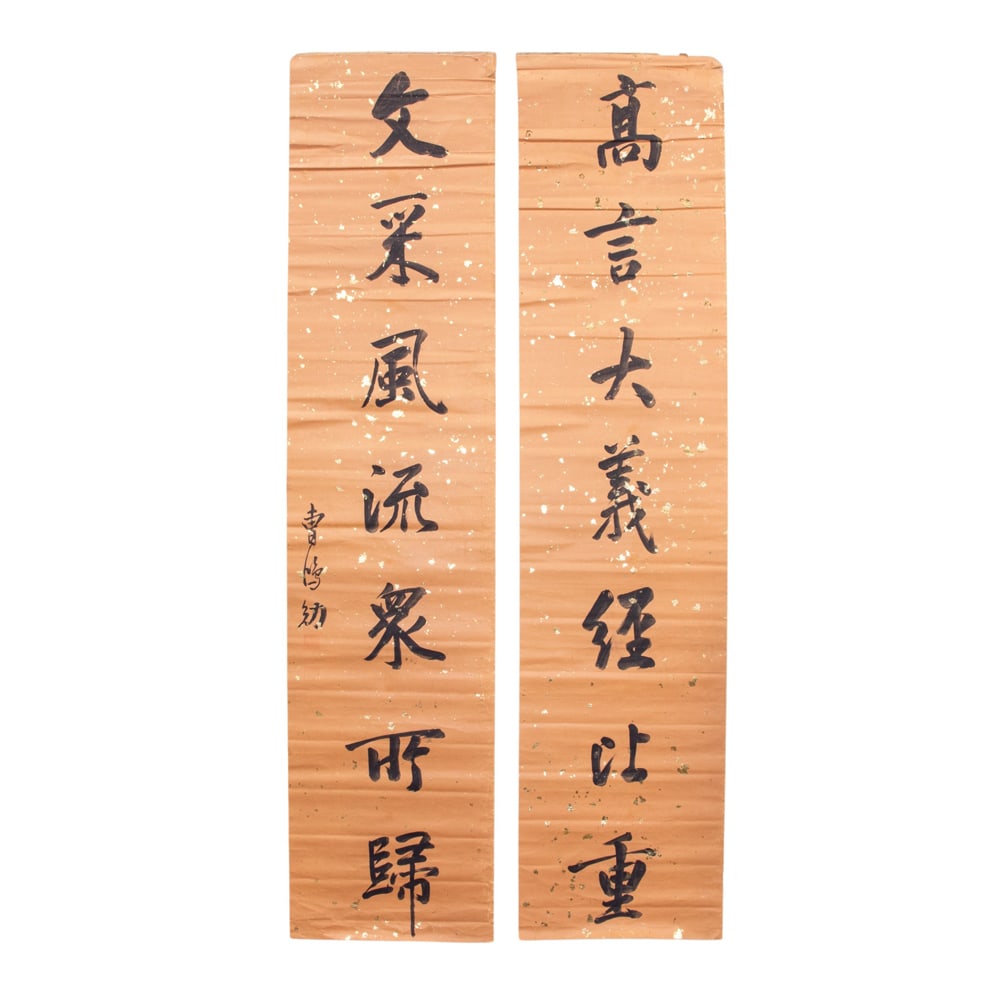 髙言大義經比重
文采風流衆所歸
曹鴻勛